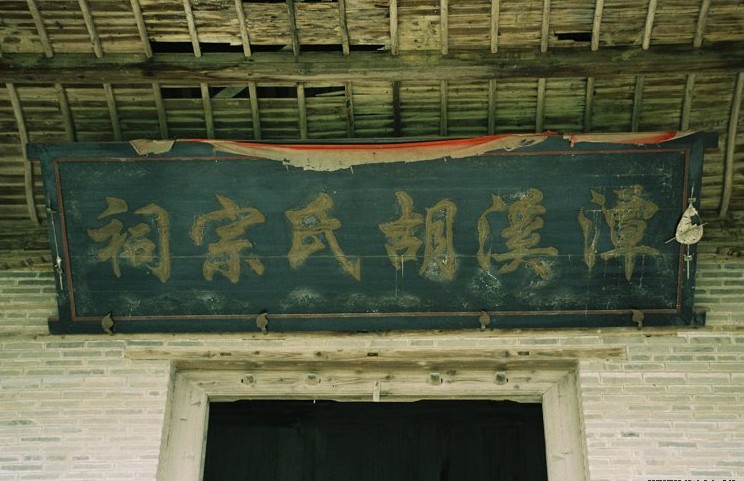 潭溪胡氏宗祠